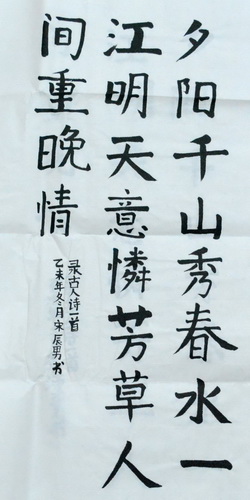 夕阳千山秀春水一
江明天意憐芳草人
间重晚情
录古人诗一首
乙未年冬月宋辰男书